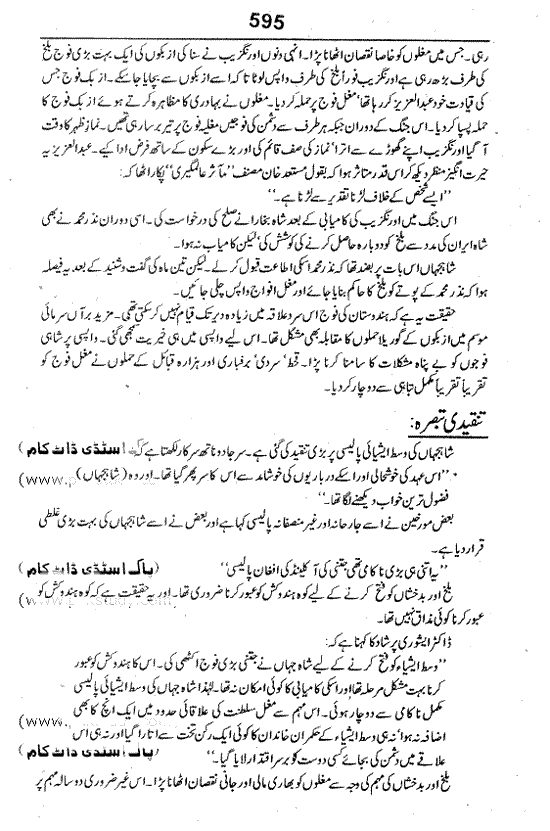 595
رہی۔ جس میں مغلوں کو خاصا نقصان اٹھانا پڑا۔ انہی دنوں اورنگزیب نے سنا کی ازبکوں کی ایک بہت بڑی فوج بلخ
کی طرف بڑھ رہی ہے اورنگزیب فوراً بلخ کی طرف واپس لوٹا تا کہ اسے ازبکوں سے بچایا جا سکے۔ ازبک فوج جس
کی قیادت خود عبدالعزیز کر رہا تھا، مغل فوج پر حملہ کر دیا۔ مغلوں نے بہادری کا مظاہرہ کرتے ہوئے ازبک فوج کا
حملہ پسپا کر دیا۔ اس جنگ کے دوران جبکہ ہر طرف سے دشمن کی فوجیں مغلیہ فوج پر تیر برسا رہی تھیں۔ نماز ظہر کا وقت
آ گیا اورنگزیب اپنے گھوڑے سے اترا، نماز کی صف قائم کی اور بڑے سکون کے ساتھ فرض ادا کیے۔ عبدالعزیز یہ
حیرت انگیز منظر دیکھ کر اس قدر متاثر ہوا کہ بقول مستعد خان مصنف ’’مآثر عالمگیری‘‘ پکار اٹھا کہ:
’’ایسے شخص کے خلاف لڑنا تقدیر سے لڑنا ہے۔‘‘
اس جنگ میں اورنگزیب کی کامیابی کے بعد شاہ بخارا نے صلح کی درخواست کی۔ اسی دوران نذر محمد نے بھی
شاہ ایران کی مدد سے بلخ کو دوبارہ حاصل کرنے کی کوشش کی، لیکن کامیاب نہ ہوا۔
شاہجہاں اس بات پر بضد تھا کہ نذر محمد اسکی اطاعت قبول کر لے۔ لیکن تین ماہ کی گفت و شنید کے بعد یہ فیصلہ
ہوا کہ نذر محمد کے پوتے کو بلخ کا حاکم بنایا جائے اور مغل افواج واپس چلی جائیں۔
حقیقت یہ ہے کہ ہندوستان کی فوج اس سرد علاقہ میں زیادہ دیر تک قیام نہیں کر سکتی تھی۔ مزید برآں سرمائی
موسم میں ازبکوں کے گوریلا حملوں کا مقابلہ بھی مشکل تھا۔ اس لیے واپسی میں ہی خیریت سمجھی گئی۔ واپسی پر شاہی
فوجوں کو بے پناہ مشکلات کا سامنا کرنا پڑا۔ قحط، سردی، برفباری اور ہزارہ قبائل کے حملوں نے مغل فوج کو
تقریباً تقریباً مکمل تباہی سے دوچار کر دیا۔
تنقیدی تبصرہ:
شاہجہاں کی وسط ایشیائی پالیسی پر بڑی تنقید کی گئی ہے۔ سر جادو ناتھ سرکار لکھتا ہے کہ اسٹڈی ڈاٹ کام )
’’اس عہد کی خوشحالی اور اسکے درباریوں کی خوشامد سے اس کا سر پھر گیا تھا۔ اور وہ (شاہجہاں) (www.
فضول ترین خواب دیکھنے لگا تھا۔‘‘
بعض مورخین نے اسے جارحانہ اور غیر منصفانہ پالیسی کہا ہے اور بعض نے اسے شاہجہاں کی بہت بڑی غلطی
قرار دیا ہے۔
’’یہ اتنی ہی بڑی ناکامی تھی جتنی کی آکلینڈ کی افغان پالیسی‘‘ (پاک اسٹڈی ڈاٹ کام )
بلخ اور بدخشاں کو فتح کرنے کے لیے کوہ ہندوکش کو عبور کرنا ضروری تھا۔ اور یہ حقیقت ہے کہ کوہ ہندوکش کو
عبور کرنا کوئی مذاق نہیں تھا۔
ڈاکٹر ایشوری پرشاد کا کہنا ہے کہ:
’’وسط ایشیاء کو فتح کرنے کے لیے شاہ جہاں نے جتنی بڑی فوج اکٹھی کی۔ اس کا ہندوکش کو عبور
کرنا بہت مشکل مرحلہ تھا اور اسکی کامیابی کا کوئی امکان نہ تھا۔ لہٰذا شاہ جہاں کی وسط ایشیائی پالیسی
مکمل ناکامی سے دوچار ہوئی۔ اس مہم سے مغل سلطنت کی علاقائی حدود میں ایک انچ کا بھی (www.
اضافہ نہ ہوا، نہ ہی وسط ایشیاء کے حکمران خاندان کا کوئی ایک رکن تخت سے اتارا گیا اور نہ ہی اس
علاقے میں دشمن کی بجائے کسی دوست کو برسر اقتدار لایا گیا۔‘‘ پاک اسٹڈی ڈاٹ کام )
بلخ اور بدخشاں کی مہم کی وجہ سے مغلوں کو بھاری مالی اور جانی نقصان اٹھانا پڑا۔ اس غیر ضروری دو سالہ مہم پر